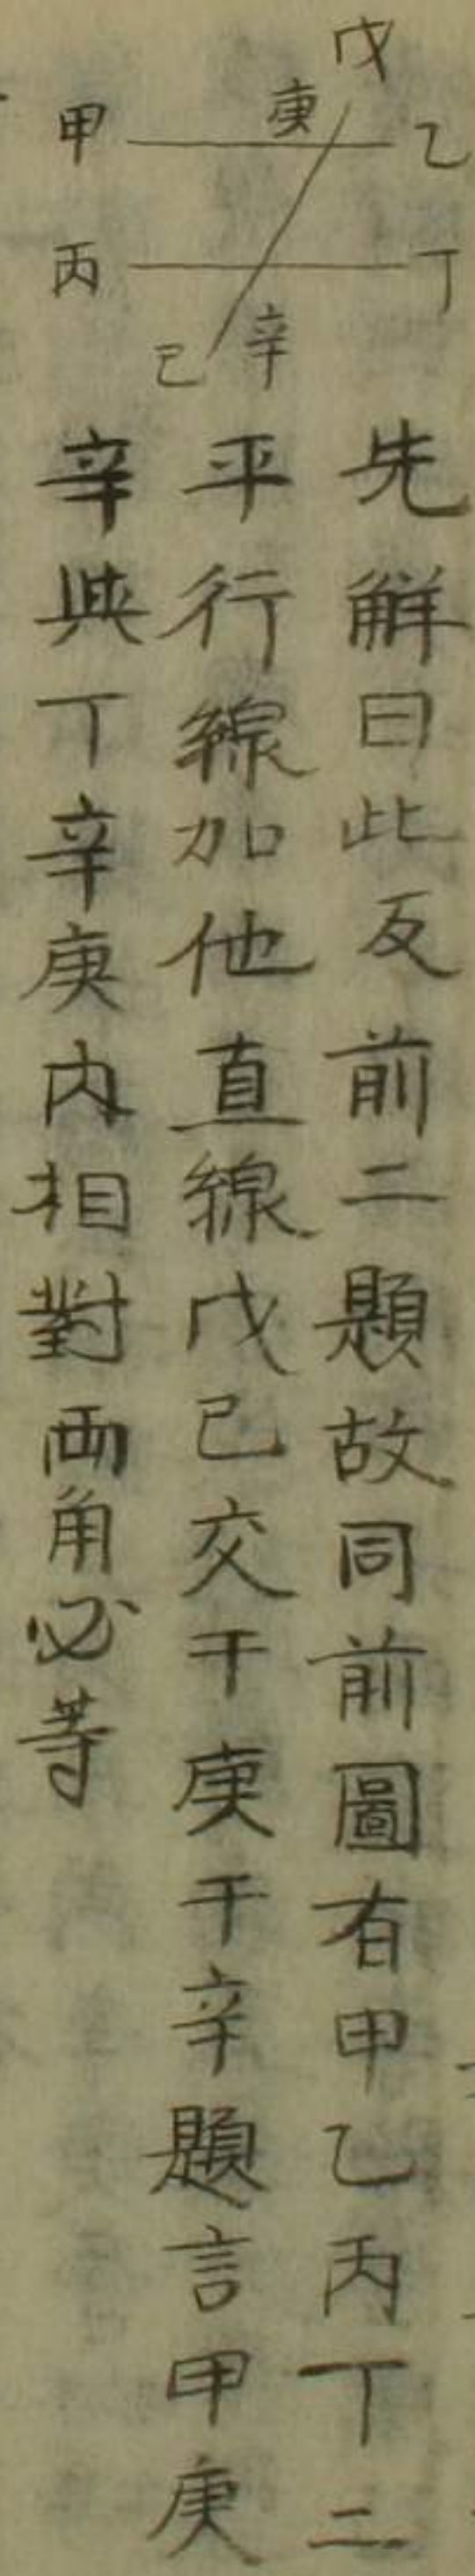 戊
庚
甲 乙
丙 丁
己 辛
先解曰此反前二題故同前圖有甲乙丙丁二
平行線加他直線戊己交于庚于辛題言甲庚
辛與丁辛庚内相對兩角必等